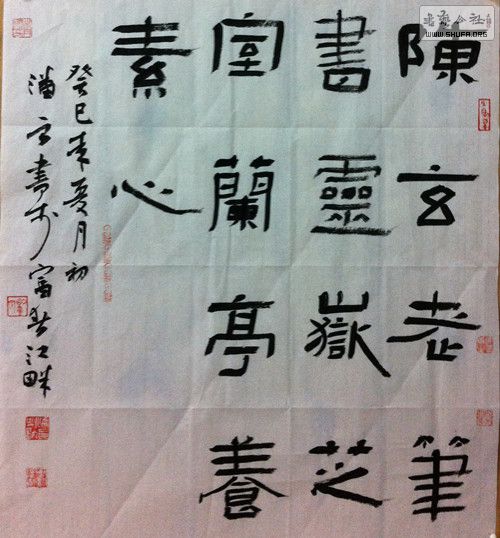 陳玄老筆
書靈嶽芝
室蘭亭養
素心
癸巳年夏月初
云書於富春江畔
書法公社
WWW.SHUFA.ORG